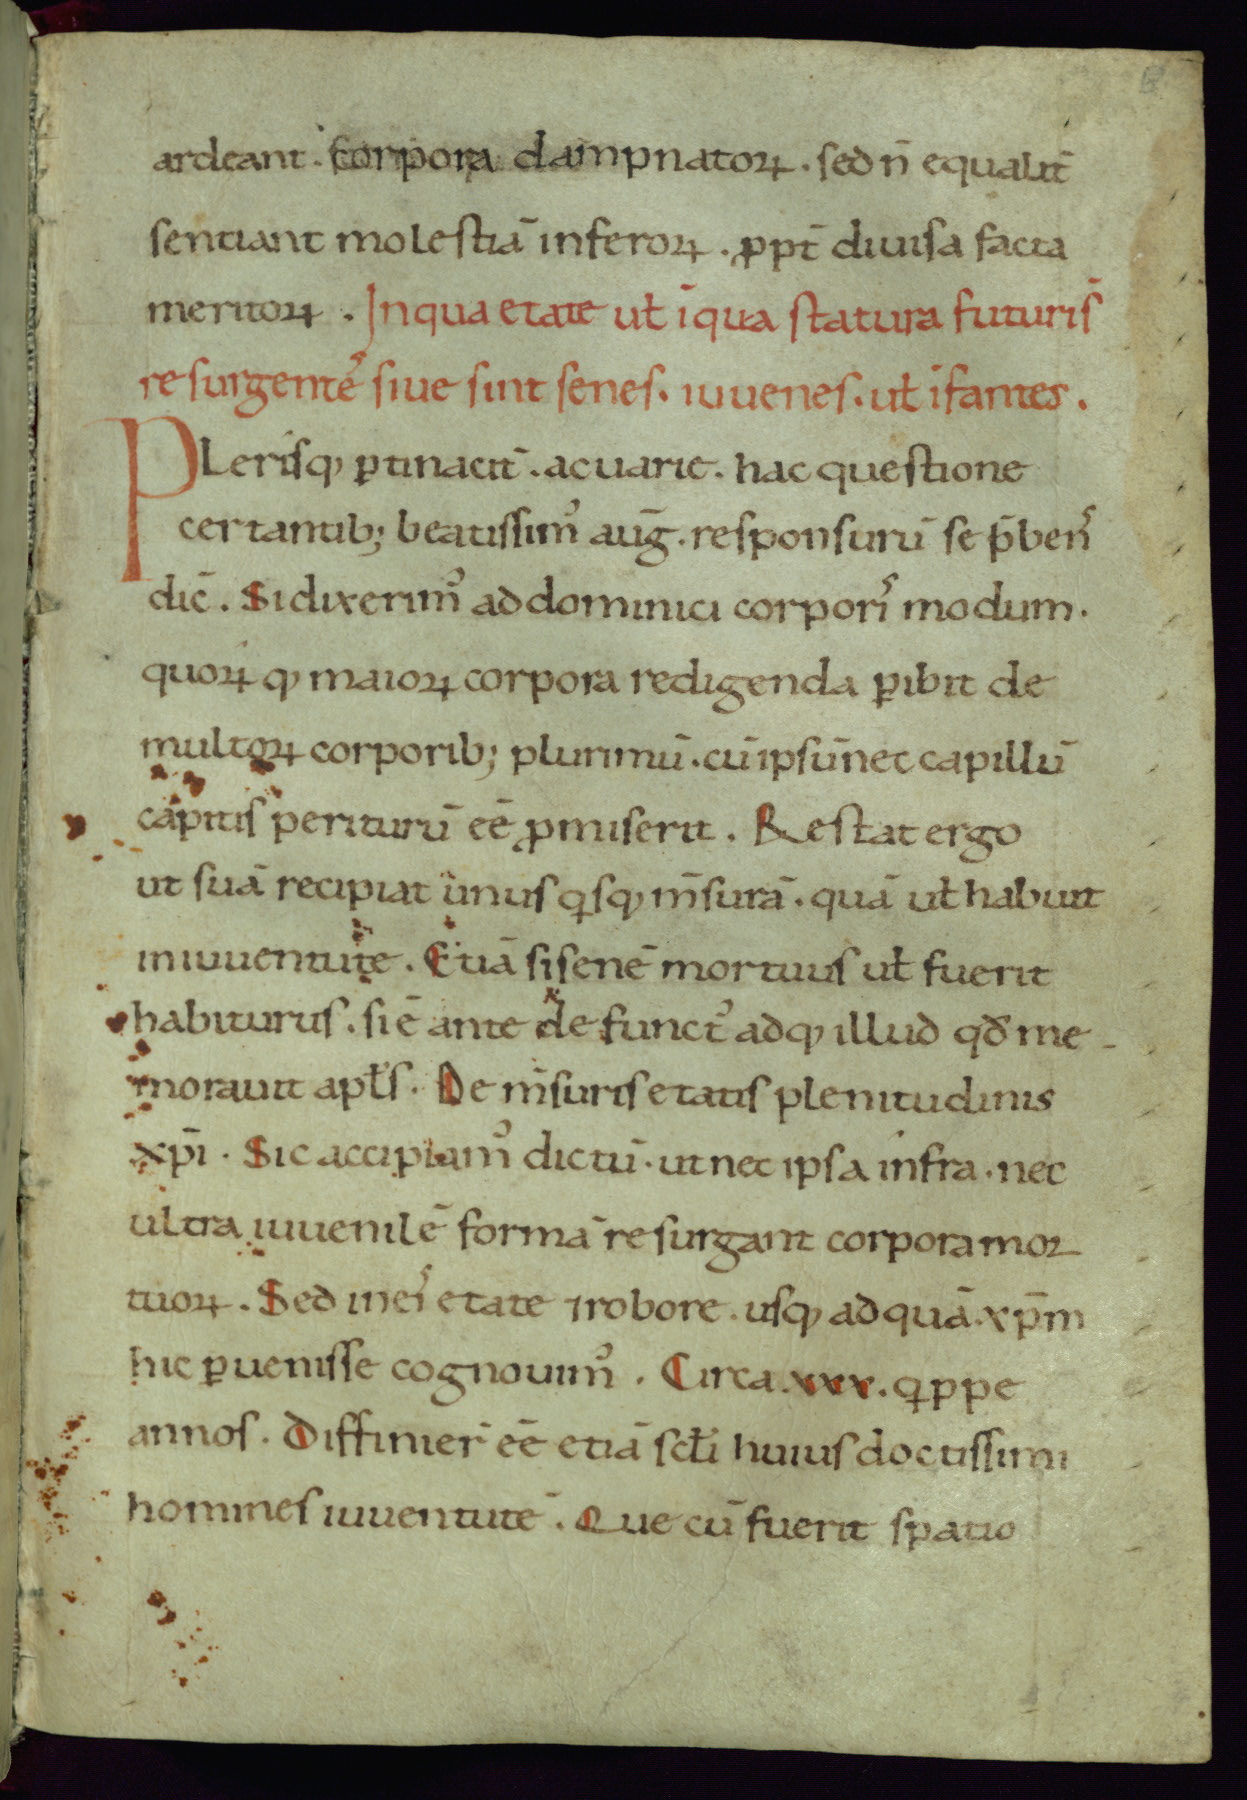 ardeant . corpora dampnatoꝝ . sed n̄ equalit̄
sentiant molestiā inferoꝝ . ꝓpt̄ diuisa facta
meritoꝝ . In qua etate ut̵ ī qua statura futuri s̄
resurgentes siue sint senes . iuuenes . ut̵ ifantes .
Plerisqꝫ ꝑtinacit̄ . ac uarie . hac questione
certantibꝫ beatissimꝰ aug̅ . responsurū se p̄bens
dic̄ . Si dixerimꝰ ad dominici corporis modum .
quoꝝ qꝫ maioꝝ corpora redigenda ꝑibit de
multoꝝ corporibꝫ plurimū . cū ipsū nec capillū
capitis periturū eē ꝓmiserit . Restat ergo
ut suā recipiat unus qisqꝫ m̄surā . quā ut̵ habuit
in iuuentute . Etiā si senex mortuus ut̵ fuerit
habiturus . si ē ante defunctꝰ adqꝫ illud qđ me-
morauit apt̵s . De m̄suris etatis plenitudinis
xp̄i . Sic accipiamꝰ dictū . ut nec ipsa infra . nec
ultra iuuenilē formā resurgant corpora mor
tuoꝝ . Sed in eiꝰ etate ⁊ robore . usqꝫ ad quā xp̄m
hic ꝑuenisse cognouimꝰ . Circa . xxx . qippe
annos . Diffinier̄ eē etiā sct̵i huius doctissimi
homines iuuentutē . Que cū fuerit spatio